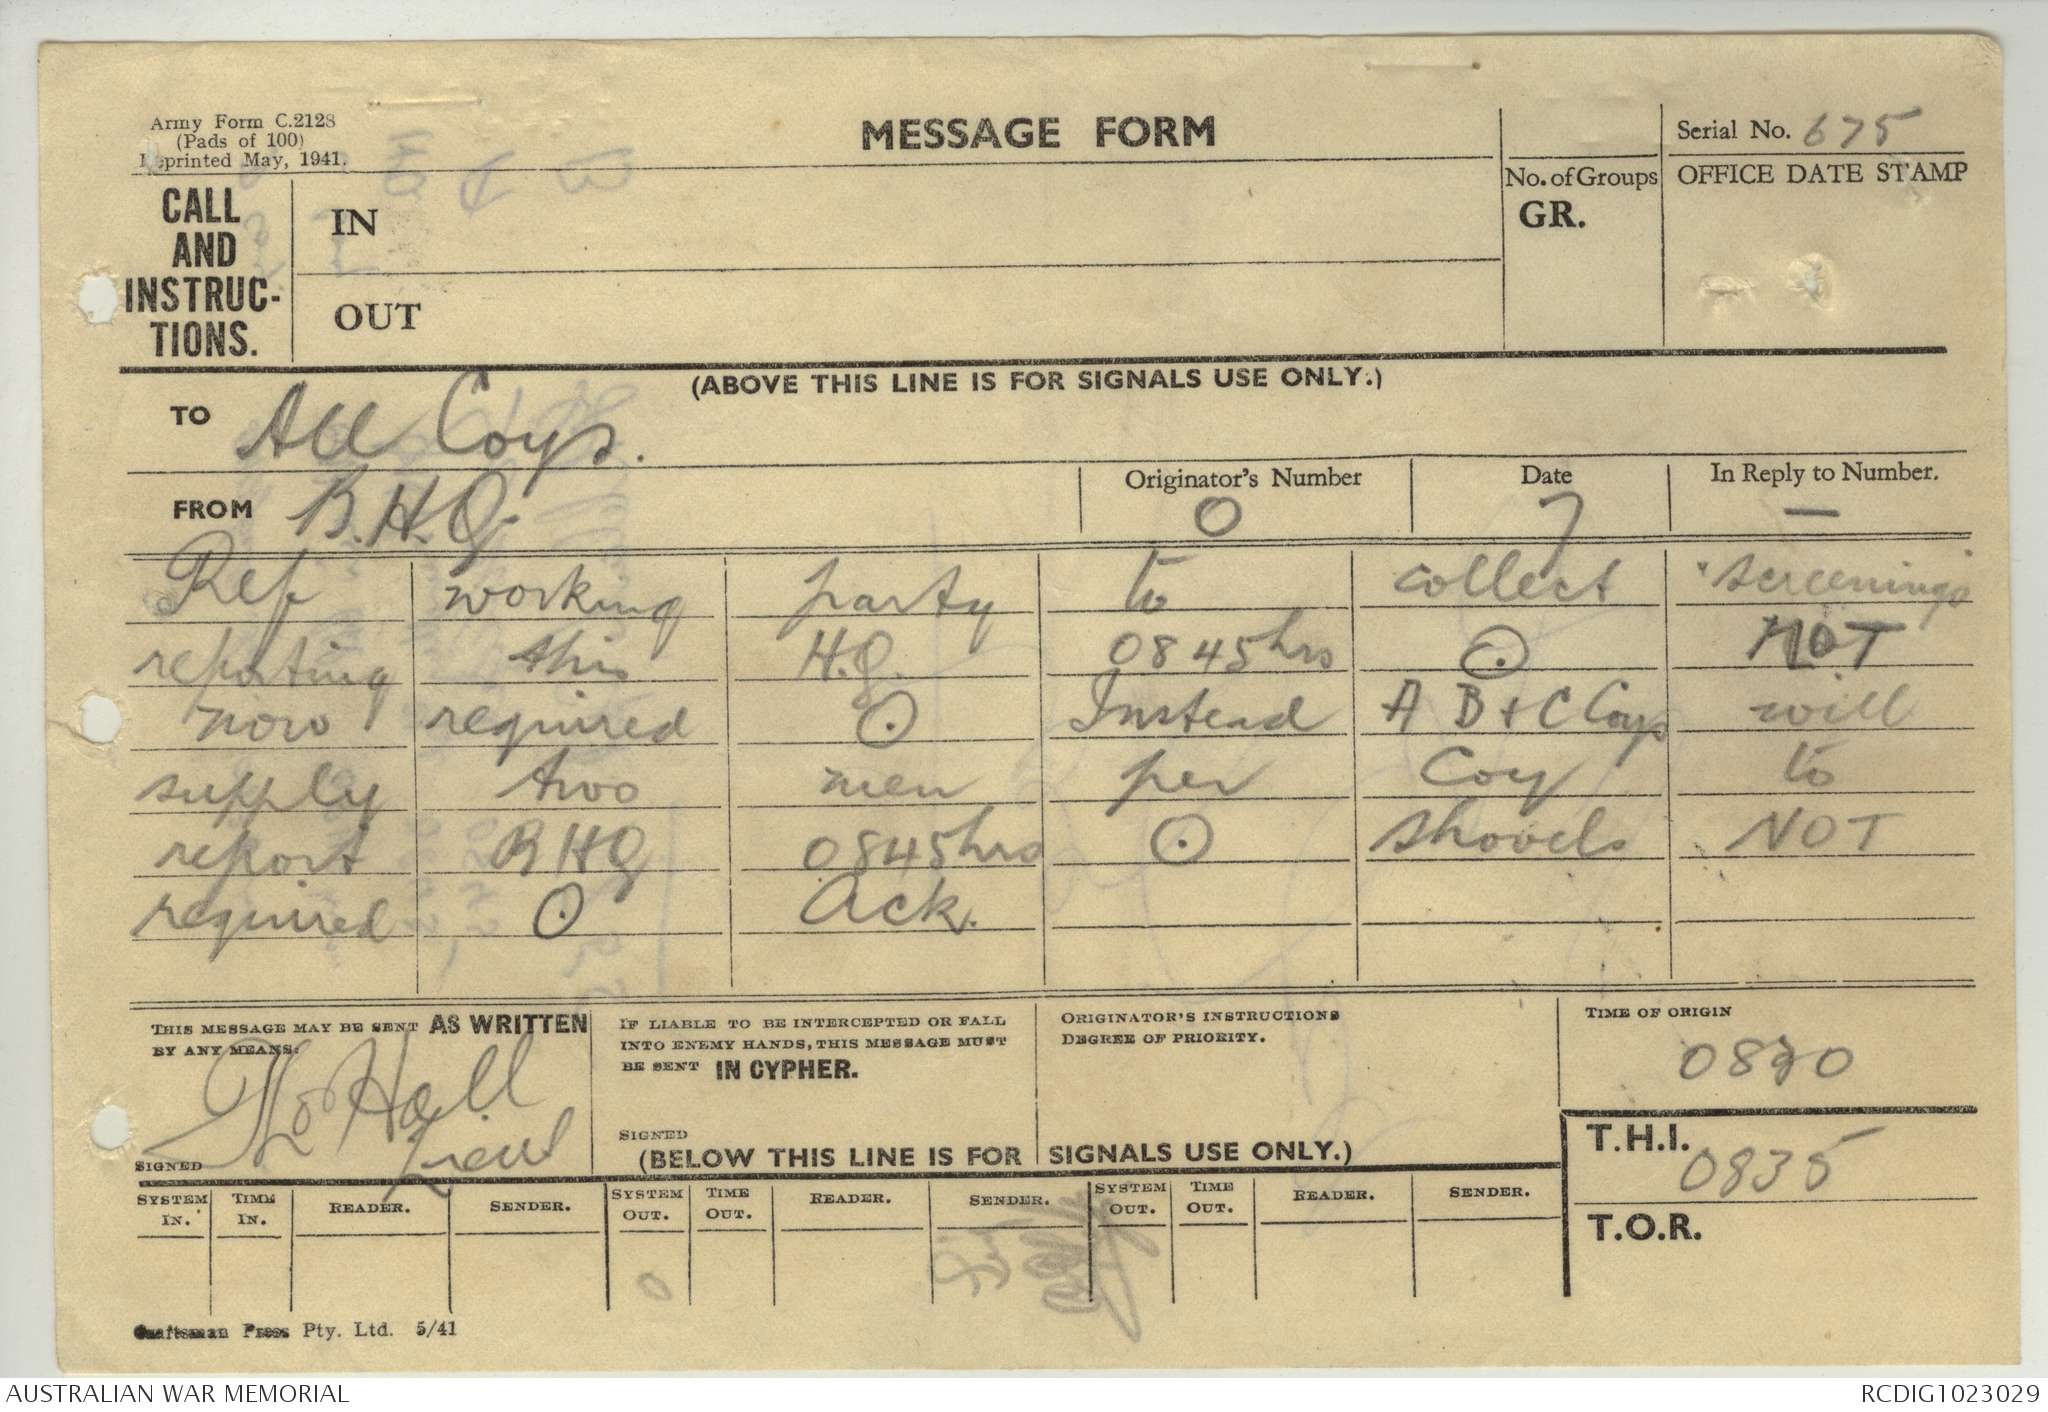 Army Form C.2128
(Pads of 100)
Reprinted May, 1941.
MESSAGE FORM
Serial No. 675
No. of Groups
GR.
OFFICE DATE STAMP
CALL
AND
INSTRUC-
TIONS.
IN
OUT
(ABOVE THIS LINE IS FOR SIGNALS USE ONLY.)
TO All Coys.
FROM B.H.Q.
Originator's Number
O
Date
7
In Reply to Number.
—
Ref working party to collect "screenings"
reporting this H.Q. 0845hrs ⊙ NOT
now required ⊙ Instead A B + C Coys will
supply two men per Coy to
report BHQ 0845hrs ⊙ shovels NOT
required ⊙ Ack.
THIS MESSAGE MAY BE SENT AS WRITTEN
BY ANY MEANS.
Hall
Lieut
SIGNED
IF LIABLE TO BE INTERCEPTED OR FALL
INTO ENEMY HANDS, THIS MESSAGE MUST
BE SENT IN CYPHER.
SIGNED
ORIGINATOR'S INSTRUCTIONS
DEGREE OF PRIORITY.
TIME OF ORIGIN
0820
T.H.I.
0835
T.O.R.
(BELOW THIS LINE IS FOR SIGNALS USE ONLY.)
SYSTEM IN. TIME IN. READER. SENDER. SYSTEM OUT. TIME OUT. READER. SENDER. SYSTEM OUT. TIME OUT. READER. SENDER.
Craftsman Press Pty. Ltd. 5/41
AUSTRALIAN WAR MEMORIAL
RCDIG1023029